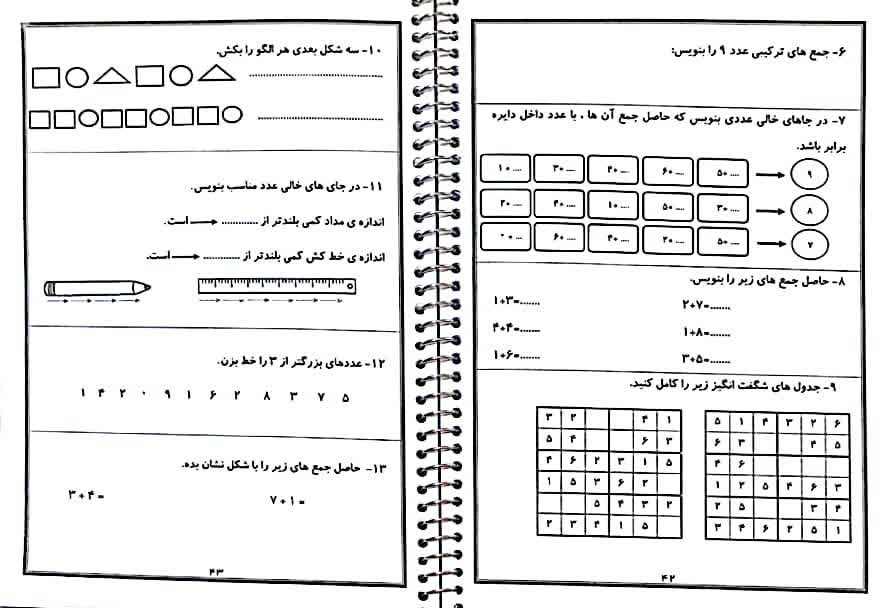 ۶- جمع های ترکیبی عدد ۹ را بنویس:
۷- در جاهای خالی عددی بنویس که حاصل جمع آن ها ، با عدد داخل دایره
برابر باشد.
۹ ۵+.... ۶+.... ۴+.... ۳+.... ۱+....
۸ ۳+.... ۵+.... ۱+.... ۴+.... ۲+....
۷ ۵+.... ۲+.... ۴+.... ۶+.... ۰+....
۸- حاصل جمع های زیر را بنویس.
۲+۷=....... ۱+۳=.......
۱+۸=....... ۴+۴=.......
۳+۵=....... ۱+۶=.......
۹- جدول های شگفت انگیز زیر را کامل کنید.
۶ ۲ ۳ ۴ ۱ ۵
۵ ۴ ۳ ۶
۶ ۴
۳ ۶ ۴ ۵ ۲ ۱
۴ ۳ ۵ ۲
۱ ۵ ۲ ۶ ۴ ۳
۱ ۴ ۲ ۳
۳ ۶ ۴ ۵
۵ ۱ ۳ ۲ ۶ ۴
۲ ۶ ۳ ۵ ۱
۲ ۳ ۴ ۵
۵ ۱ ۴ ۳ ۲
۴۲
۱۰- سه شکل بعدی هر الگو را بکش.
۱۱- در جای های خالی عدد مناسب بنویس.
اندازه ی مداد کمی بلندتر از ............ است.
اندازه ی خط کش کمی بلندتر از ............ است.
۱۲- عددهای بزرگتر از ۳ را خط بزن.
۵ ۷ ۳ ۸ ۲ ۶ ۱ ۹ ۰ ۲ ۴ ۱
۱۳- حاصل جمع های زیر را با شکل نشان بده.
۷+۱= ۳+۴=
۴۳